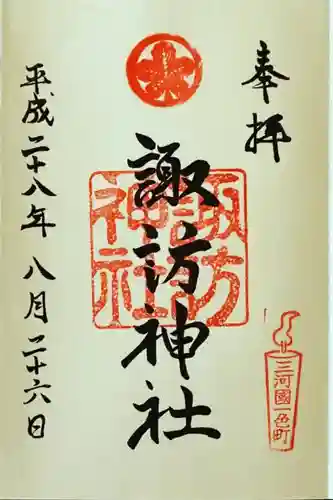 奉拝
諏訪神社
諏訪神社
三河國一色町
平成二十八年八月二十六日